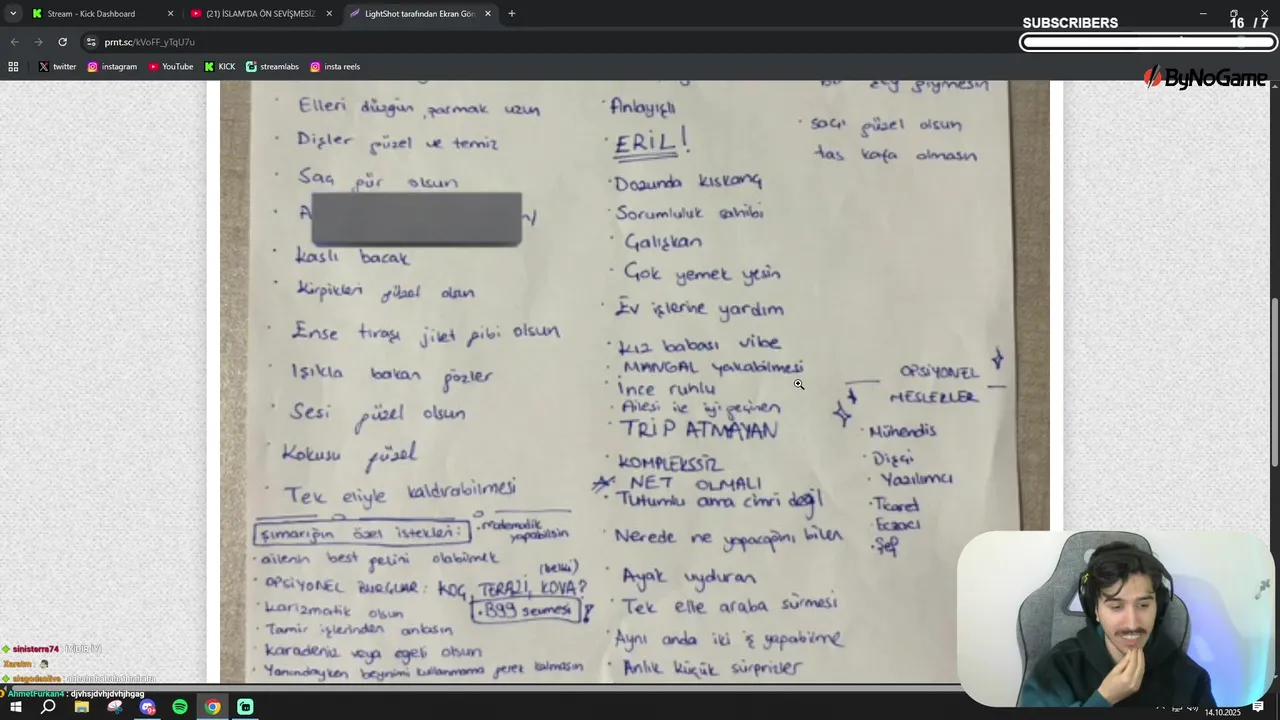 Stream - Kick Dashboard
(21) İSLAM'DA ÖN SEVİŞMESİZ
LightShot tarafından Ekran Gör
SUBSCRIBERS 16 / 7
prnt.sc/kVoFF_yTqU7u
twitter
instagram
YouTube
KICK
streamlabs
insta reels
ByNoGame
Elleri düzgün, parmak uzun
Dişler güzel ve temiz
Saç gür olsun
A
Kaslı bacak
Kirpikleri güzel olsun
Ense tıraşı jilet gibi olsun
Işıkla bakan gözler
Sesi güzel olsun
Kokusu güzel
Tek eliyle kaldırabilmesi
Şımarığın özel istekleri:
matematik yapabilsin
ailenin best gelini olabilmek
OPSİYONEL BURÇLAR: KOÇ, TERAZİ, KOVA?
(belki)
Karizmatik olsun
BGG sevmesi !
Tamir işlerinden anlasın
Karadeniz veya egeli olsun
Yanındayken beynimi kullanmama gerek kalmasın
Anlayışlı
ERİL!
Dozunda kıskanç
Sorumluluk sahibi
Çalışkan
Çok yemek yesin
Ev işlerine yardım
Kız babası vibe
MANGAL yakabilmesi
İnce ruhlu
Ailesi ile iyi geçinen
TRİP ATMAYAN
KOMPLEKSSİZ
NET OLMALI
Tutumlu ama cimri değil
Nerede ne yapacağını bilen
Ayak uyduran
Tek elle araba sürmesi
Aynı anda iki iş yapabilme
Anlık küçük sürprizler
giymesin
saçı güzel olsun
tas kafa olmasın
OPSİYONEL
MESLEKLER
Mühendis
Dişçi
Yazılımcı
Ticaret
Eczacı
Şef
sinisterra74
Xaratm :
AhmetFurkan4 : djvhsjdvhjdvhjhgag
14.10.2025